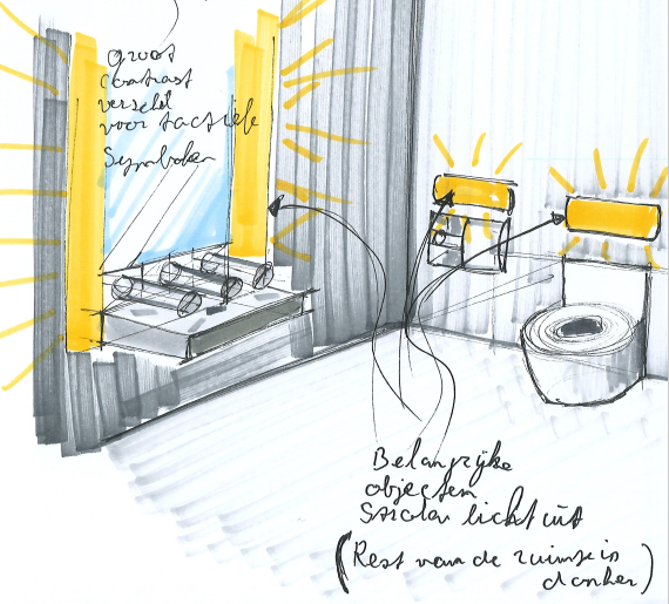 groot
contrast
verschil
voor tactiele
Symbolen
Belangrijke
objecten
Stralen licht uit
(Rest van de ruimte is
donker)